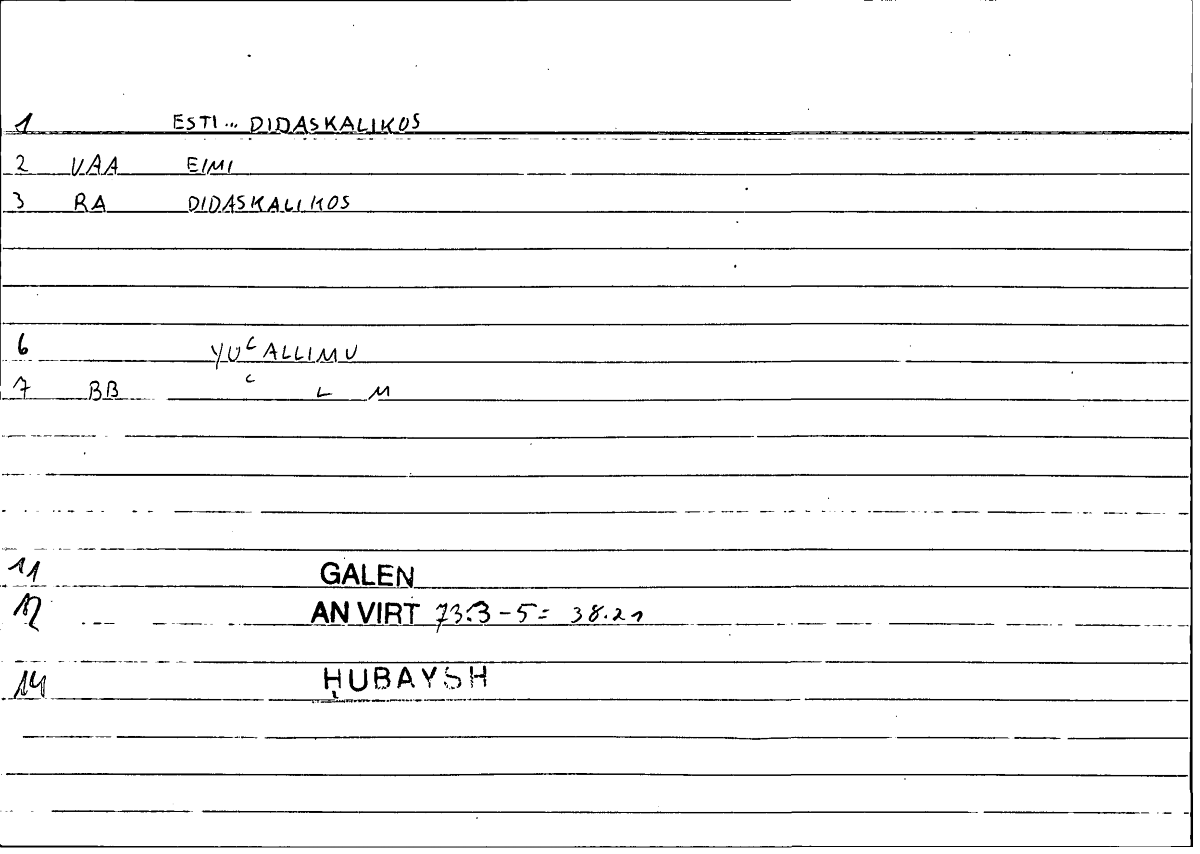 1 ESTI... DIDASKALIKOS
2 VAA EIMI
3 RA DIDASKALIKOS
6 YUʿALLIMU
7 BB ʿ L M
11 GALEN
12 AN VIRT 73.3-5= 38.21
14 ḤUBAYSH